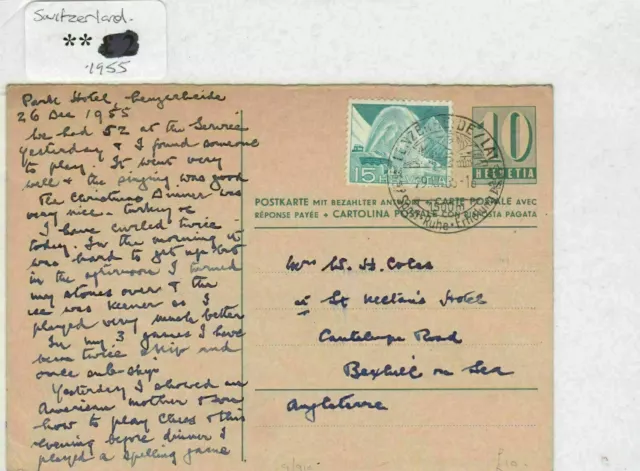 Switzerland.
**
1955
Park Hotel, Lenzerheide
26 Dec 1955
We had 52 at the Service
yesterday & I found someone
to play. It went very
well & the singing was good
The Christmas Dinner was
very nice - turkey &
I have curled twice
today. In the morning it
was hard to get up but
in the afternoon I turned
my stones over & the
ice was keener so I
played very much better
In my 3 games I have
been twice skip and
once sub-skip
Yesterday I showed an
American mother & son
how to play Chess & this
evening before dinner I
played a spelling game
15
10
HELVETIA
LENZERHEIDE/LAI
1500 m
Sport-Ruhe-Erholung
POSTKARTE MIT BEZAHLTER ANTWORT CARTE POSTALE AVEC
RÉPONSE PAYÉE CARTOLINA POSTALE RISPOSTA PAGATA
Mrs W. H. Coles
at St Nectans Hotel
Cantelupe Road
Bexhill on Sea
Angleterre